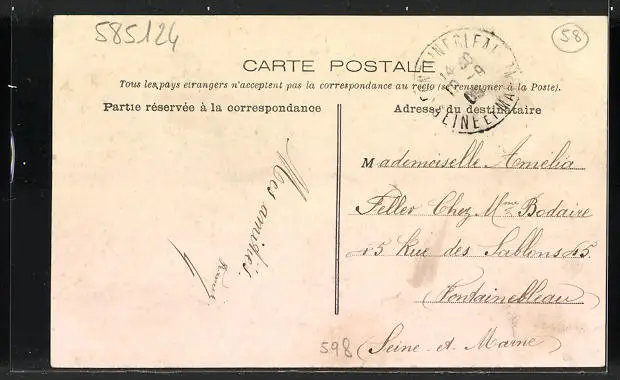 585124
58
CARTE POSTALE
Tous les pays etrangers n'acceptent pas la correspondance au recto (se renseigner à la Poste).
Partie réservée à la correspondance
Adresse du destinataire
SEINE ET MA
Mes amitiés
Mademoiselle Amelia
Feller Chez Mme Bodaire
15 Rue des Sablons 15
Fontainebleau
(Seine et Marne)
598